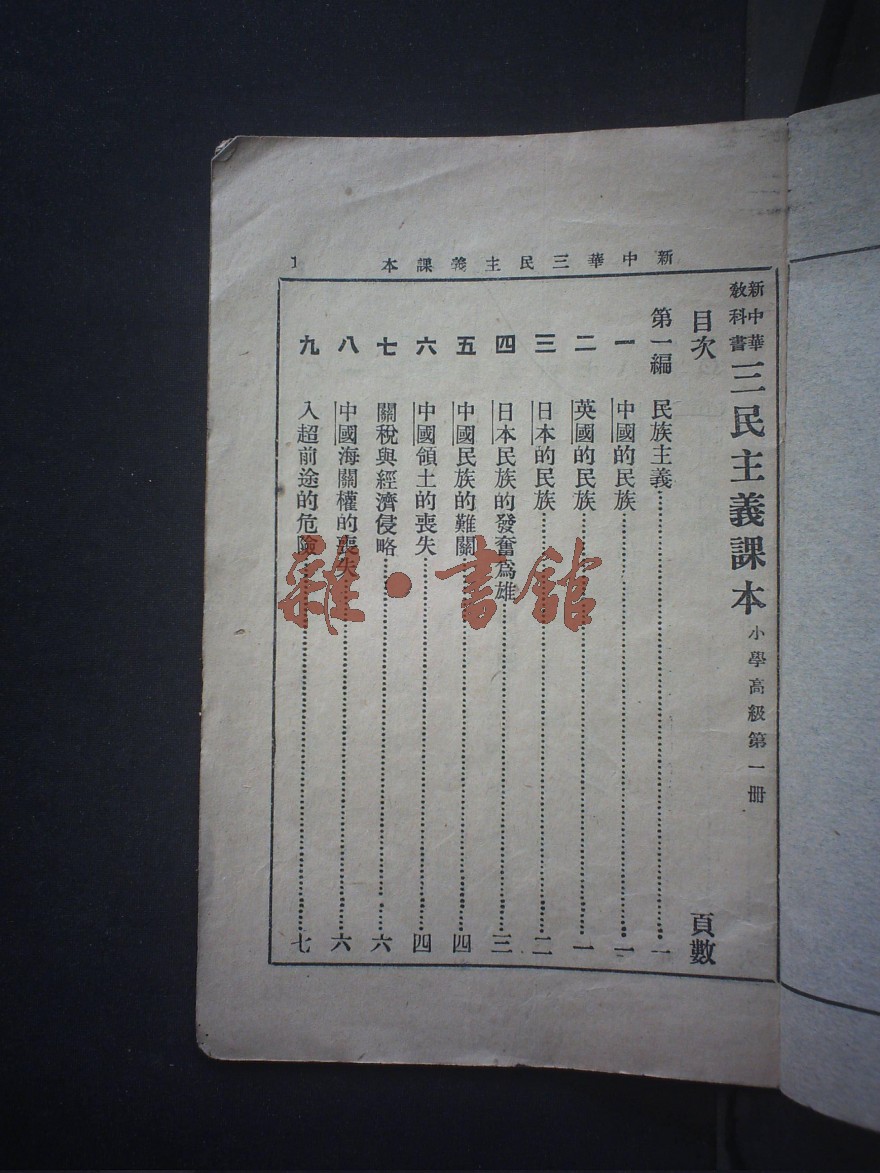 新中華三民主義課本 1
新中華教科書 三民主義課本 小學高級第一冊
目次 頁數
第一編 民族主義 一
一 中國的民族 一
二 英國的民族 一
三 日本的民族 二
四 日本民族的發奮爲雄 三
五 中國民族的難關 四
六 中國領土的喪失 四
七 關稅與經濟侵略 六
八 中國海關權的喪失 六
九 入超前途的危險 七
雜·書館